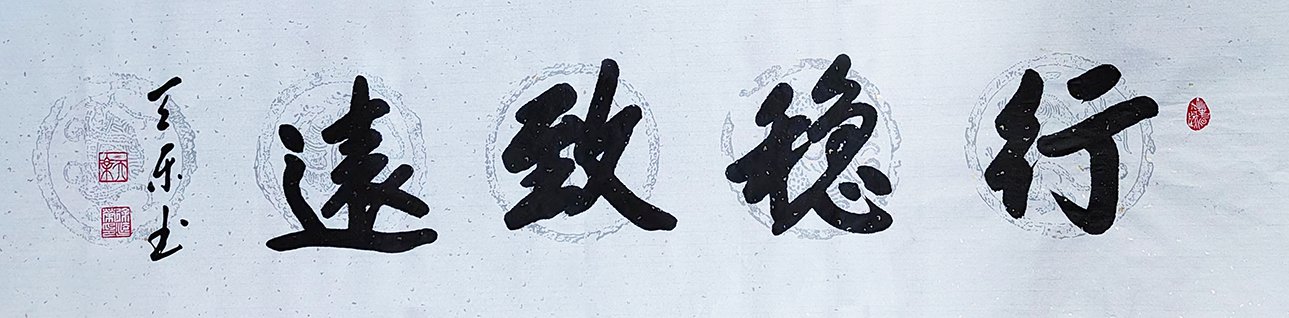 行稳致遠
天乐书